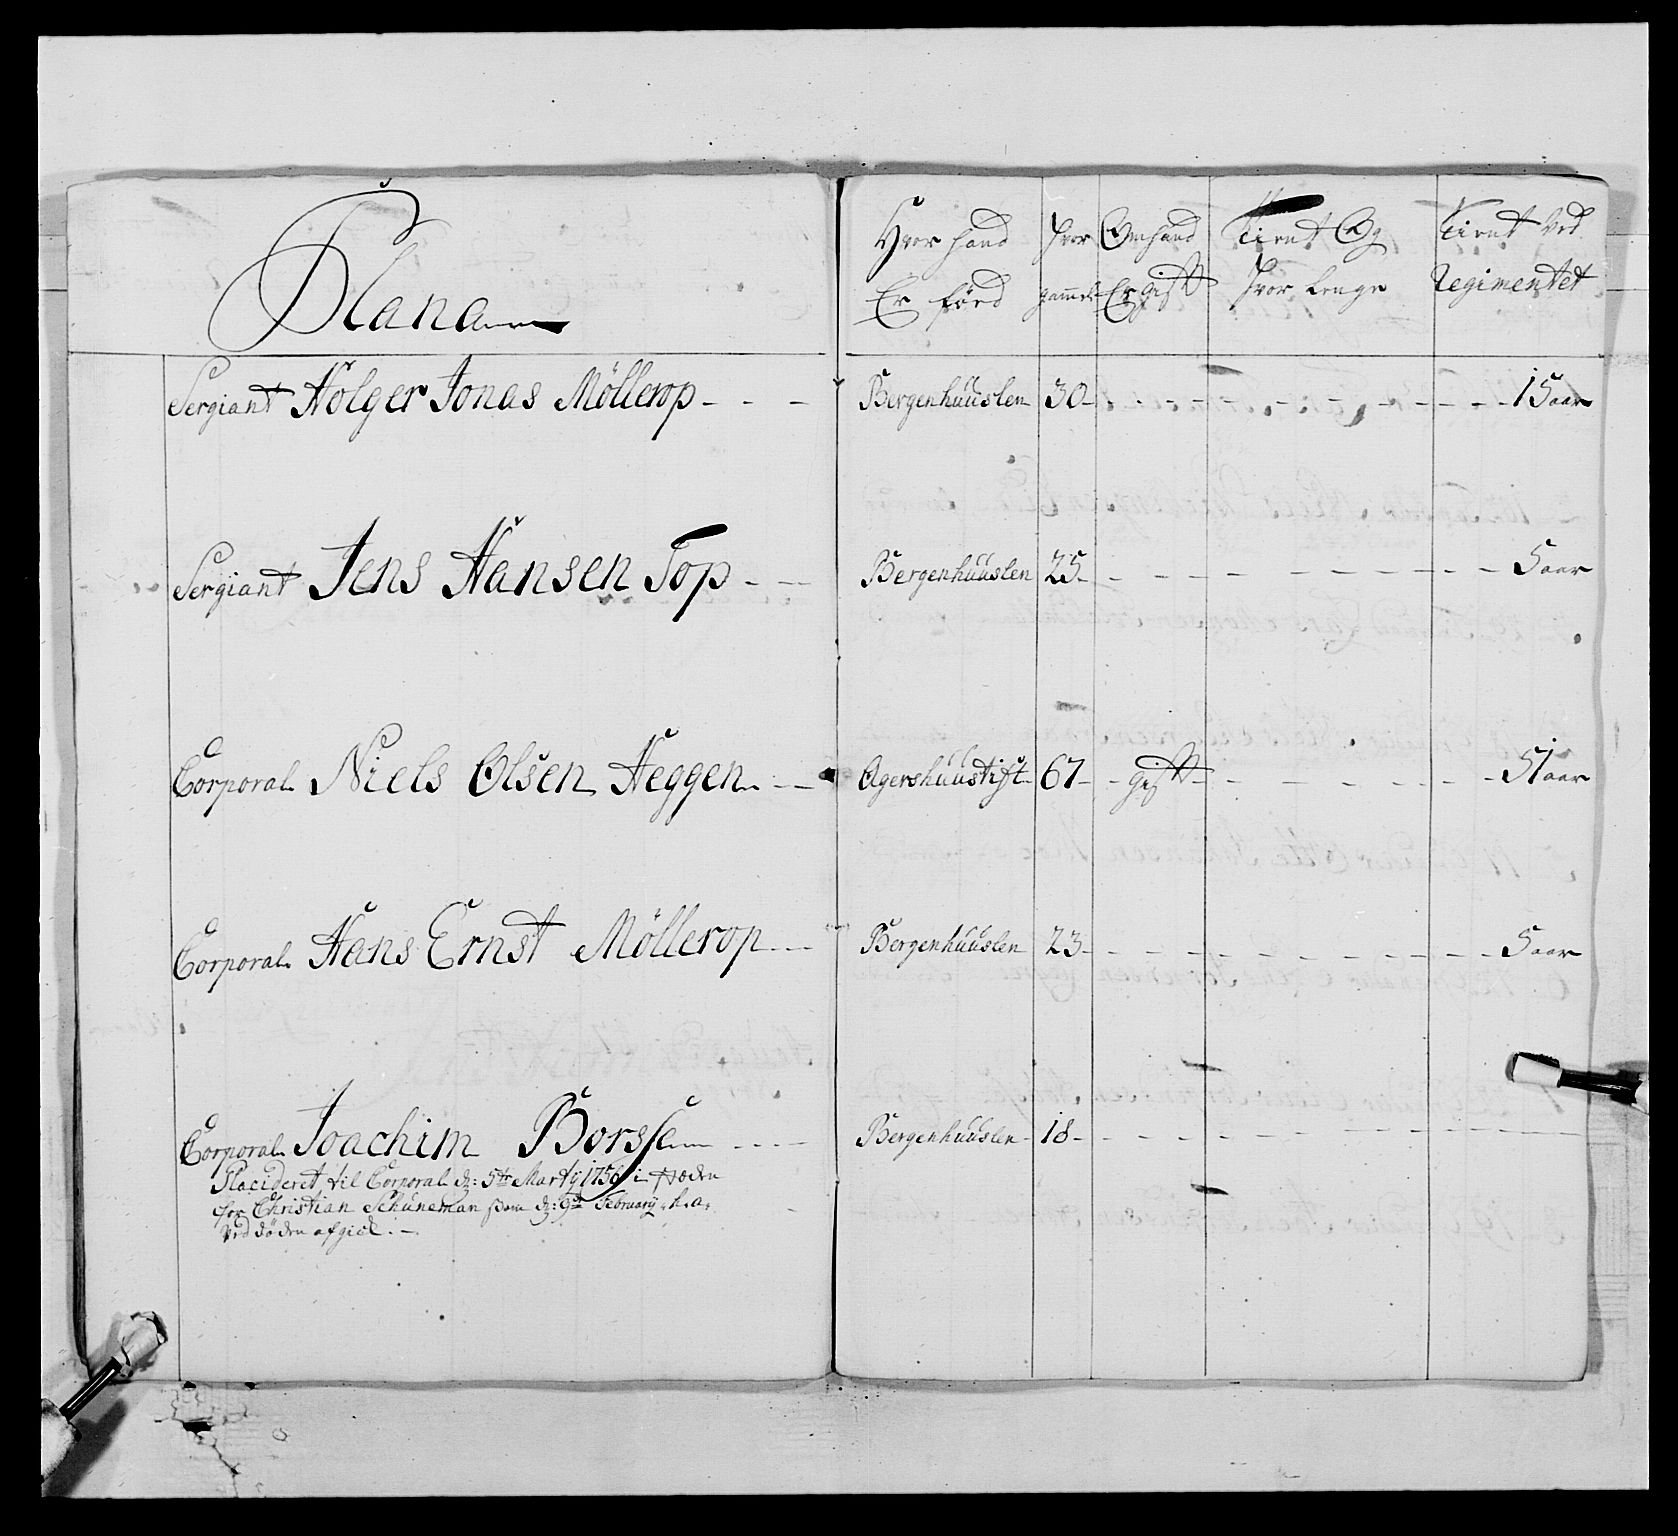 Plana
Hvor hand Er föed
Hvor gammel
Om hand Er gift
Tient Og Hvor Lenge
Tient Ved Regimentet
Sergiant Holger Jonas Möllerop - - - Bergenhuuslen 30 - - - 15 aar
Sergiant Jens Hansen Top - - - Bergenhuuslen 25 - - - 5 aar
Corporal Niels Olsen Heggen - - - Agershuustift 67 - gift - - - 51 aar
Corporal Hans Ernst Möllerop - - - Bergenhuuslen 23 - - - 5 aar
Corporal Joachim Borssa - - - Bergenhuuslen 18 - - -
Placideret til Corporal d: 5te Marty 1756 i Støden
for Christian Schuneman som d: 9de February h: a:
Ved döden afgick. -